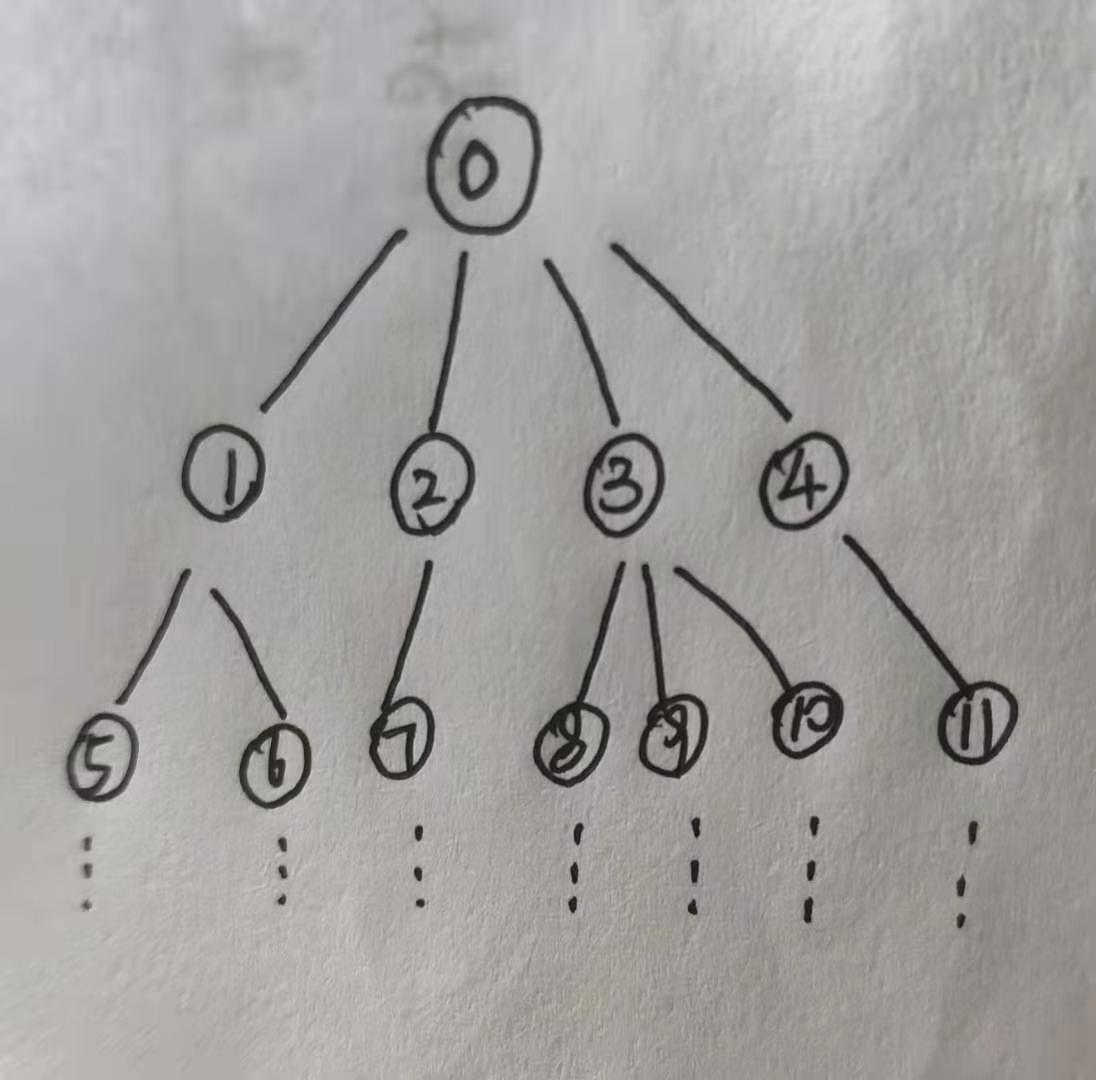 0
1 2 3 4
5 6 7 8 9 10 11